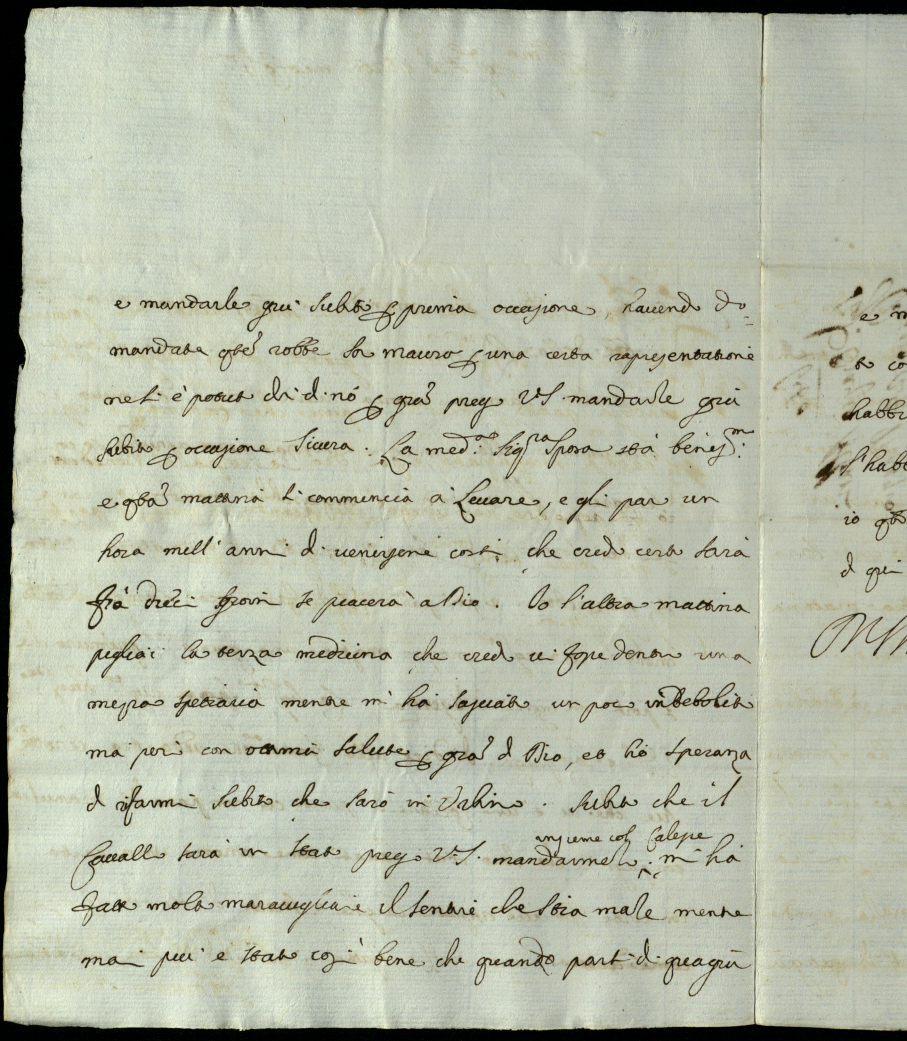 e mandarle qui subito ꝑ prima occasione, havendo do=
mandate qste robbe Sr mauro ꝑ una certa rapresentatione
ne si è potuto dir di nó ꝑ qsto prego V.S. mandarle qui
subito ꝑ occasione sicura. La med.a Sigra Sposa stà beniss.mo
e qsta mattina si comincia à Levare, e gli par un
hora mill'anni di venirsene costì, che credo certo sarà
frà dieci giorni se piacerà a Dio. Io l'altra mattina
pigliai la terza medicina che credo vi fosse dentro una
mezza spetiaria mentre m'ha lasciato un poco indebolito
ma però con ottima salute ꝑ gra d Dio, et hò speranza
d rifarmi subito che sarò in Urbino. subito che il
Cavallo sarà in stato prego V.S. mandarmelo insieme col Calesse; m'ha
fatto molto maravigliare il sentire che stia male mentre
mai più e stato così bene che quando parti di qua giù
e m
to co
habbi
l'hab
io qsto
d qui